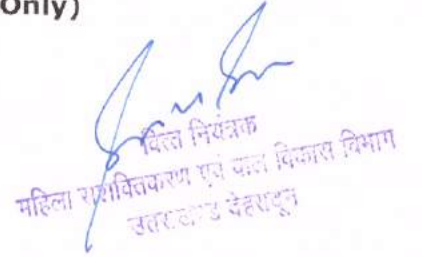 Only)
वित्त नियंत्रक
महिला सशक्तिकरण एवं बाल विकास विभाग
उत्तराखण्ड देहरादून